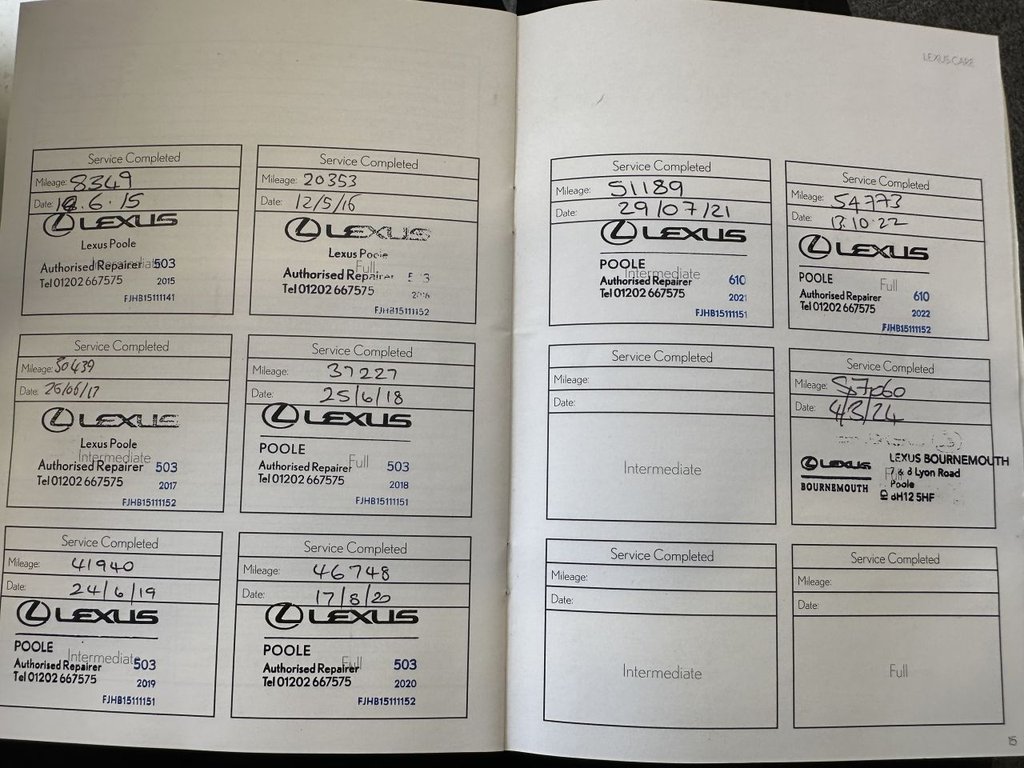 LEXUS CARE
Service Completed
Mileage: 8349
Date: 16.6.15
LEXUS
Lexus Poole
Intermediate
Authorised Repairer 503
Tel 01202 667575 2015
FJHB15111141
Service Completed
Mileage: 20353
Date: 12/5/16
LEXUS
Lexus Poole
Full
Authorised Repairer 503
Tel 01202 667575 2016
FJHB15111152
Service Completed
Mileage: 30439
Date: 26/06/17
LEXUS
Lexus Poole
Intermediate
Authorised Repairer 503
Tel 01202 667575 2017
FJHB15111152
Service Completed
Mileage: 37227
Date: 25/6/18
LEXUS
POOLE
Full
Authorised Repairer 503
Tel 01202 667575 2018
FJHB15111151
Service Completed
Mileage: 41940
Date: 24/6/19
LEXUS
POOLE
Intermediate
Authorised Repairer 503
Tel 01202 667575 2019
FJHB15111151
Service Completed
Mileage: 46748
Date: 17/8/20
LEXUS
POOLE
Full
Authorised Repairer 503
Tel 01202 667575 2020
FJHB15111152
Service Completed
Mileage: 51189
Date: 29/07/21
LEXUS
POOLE
Intermediate
Authorised Repairer 610
Tel 01202 667575 2021
FJHB15111151
Service Completed
Mileage: 54773
Date: 13.10.22
LEXUS
POOLE
Full
Authorised Repairer 610
Tel 01202 667575 2022
FJHB15111152
Service Completed
Mileage:
Date:
Intermediate
Service Completed
Mileage: 57060
Date: 4/3/24
LEXUS
BOURNEMOUTH
LEXUS BOURNEMOUTH
7 & 8 Lyon Road
Full
Poole
BH12 5HF
Service Completed
Mileage:
Date:
Intermediate
Service Completed
Mileage:
Date:
Full
15